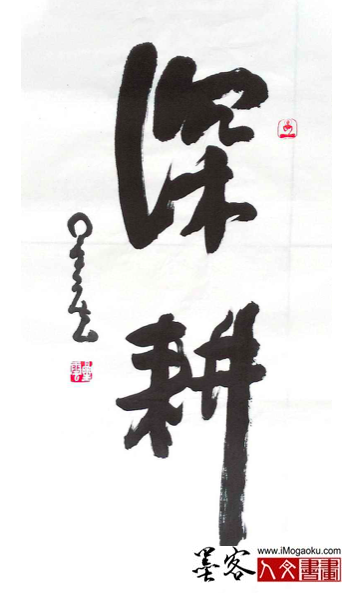 深耕
墨客
www.iMogaoku.com
人文書畫